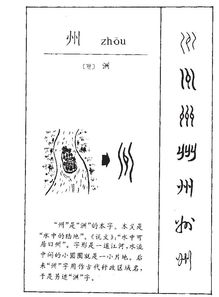 州 zhōu
"州"是"洲"的本字。本义是
"水中的陆地"。《说文》:"水中可
居曰州"。字形是一道江河,水流
中间的小圆圈就是一小片地。后
来"州"字用作古代行政区域名,
于是另造"洲"字。